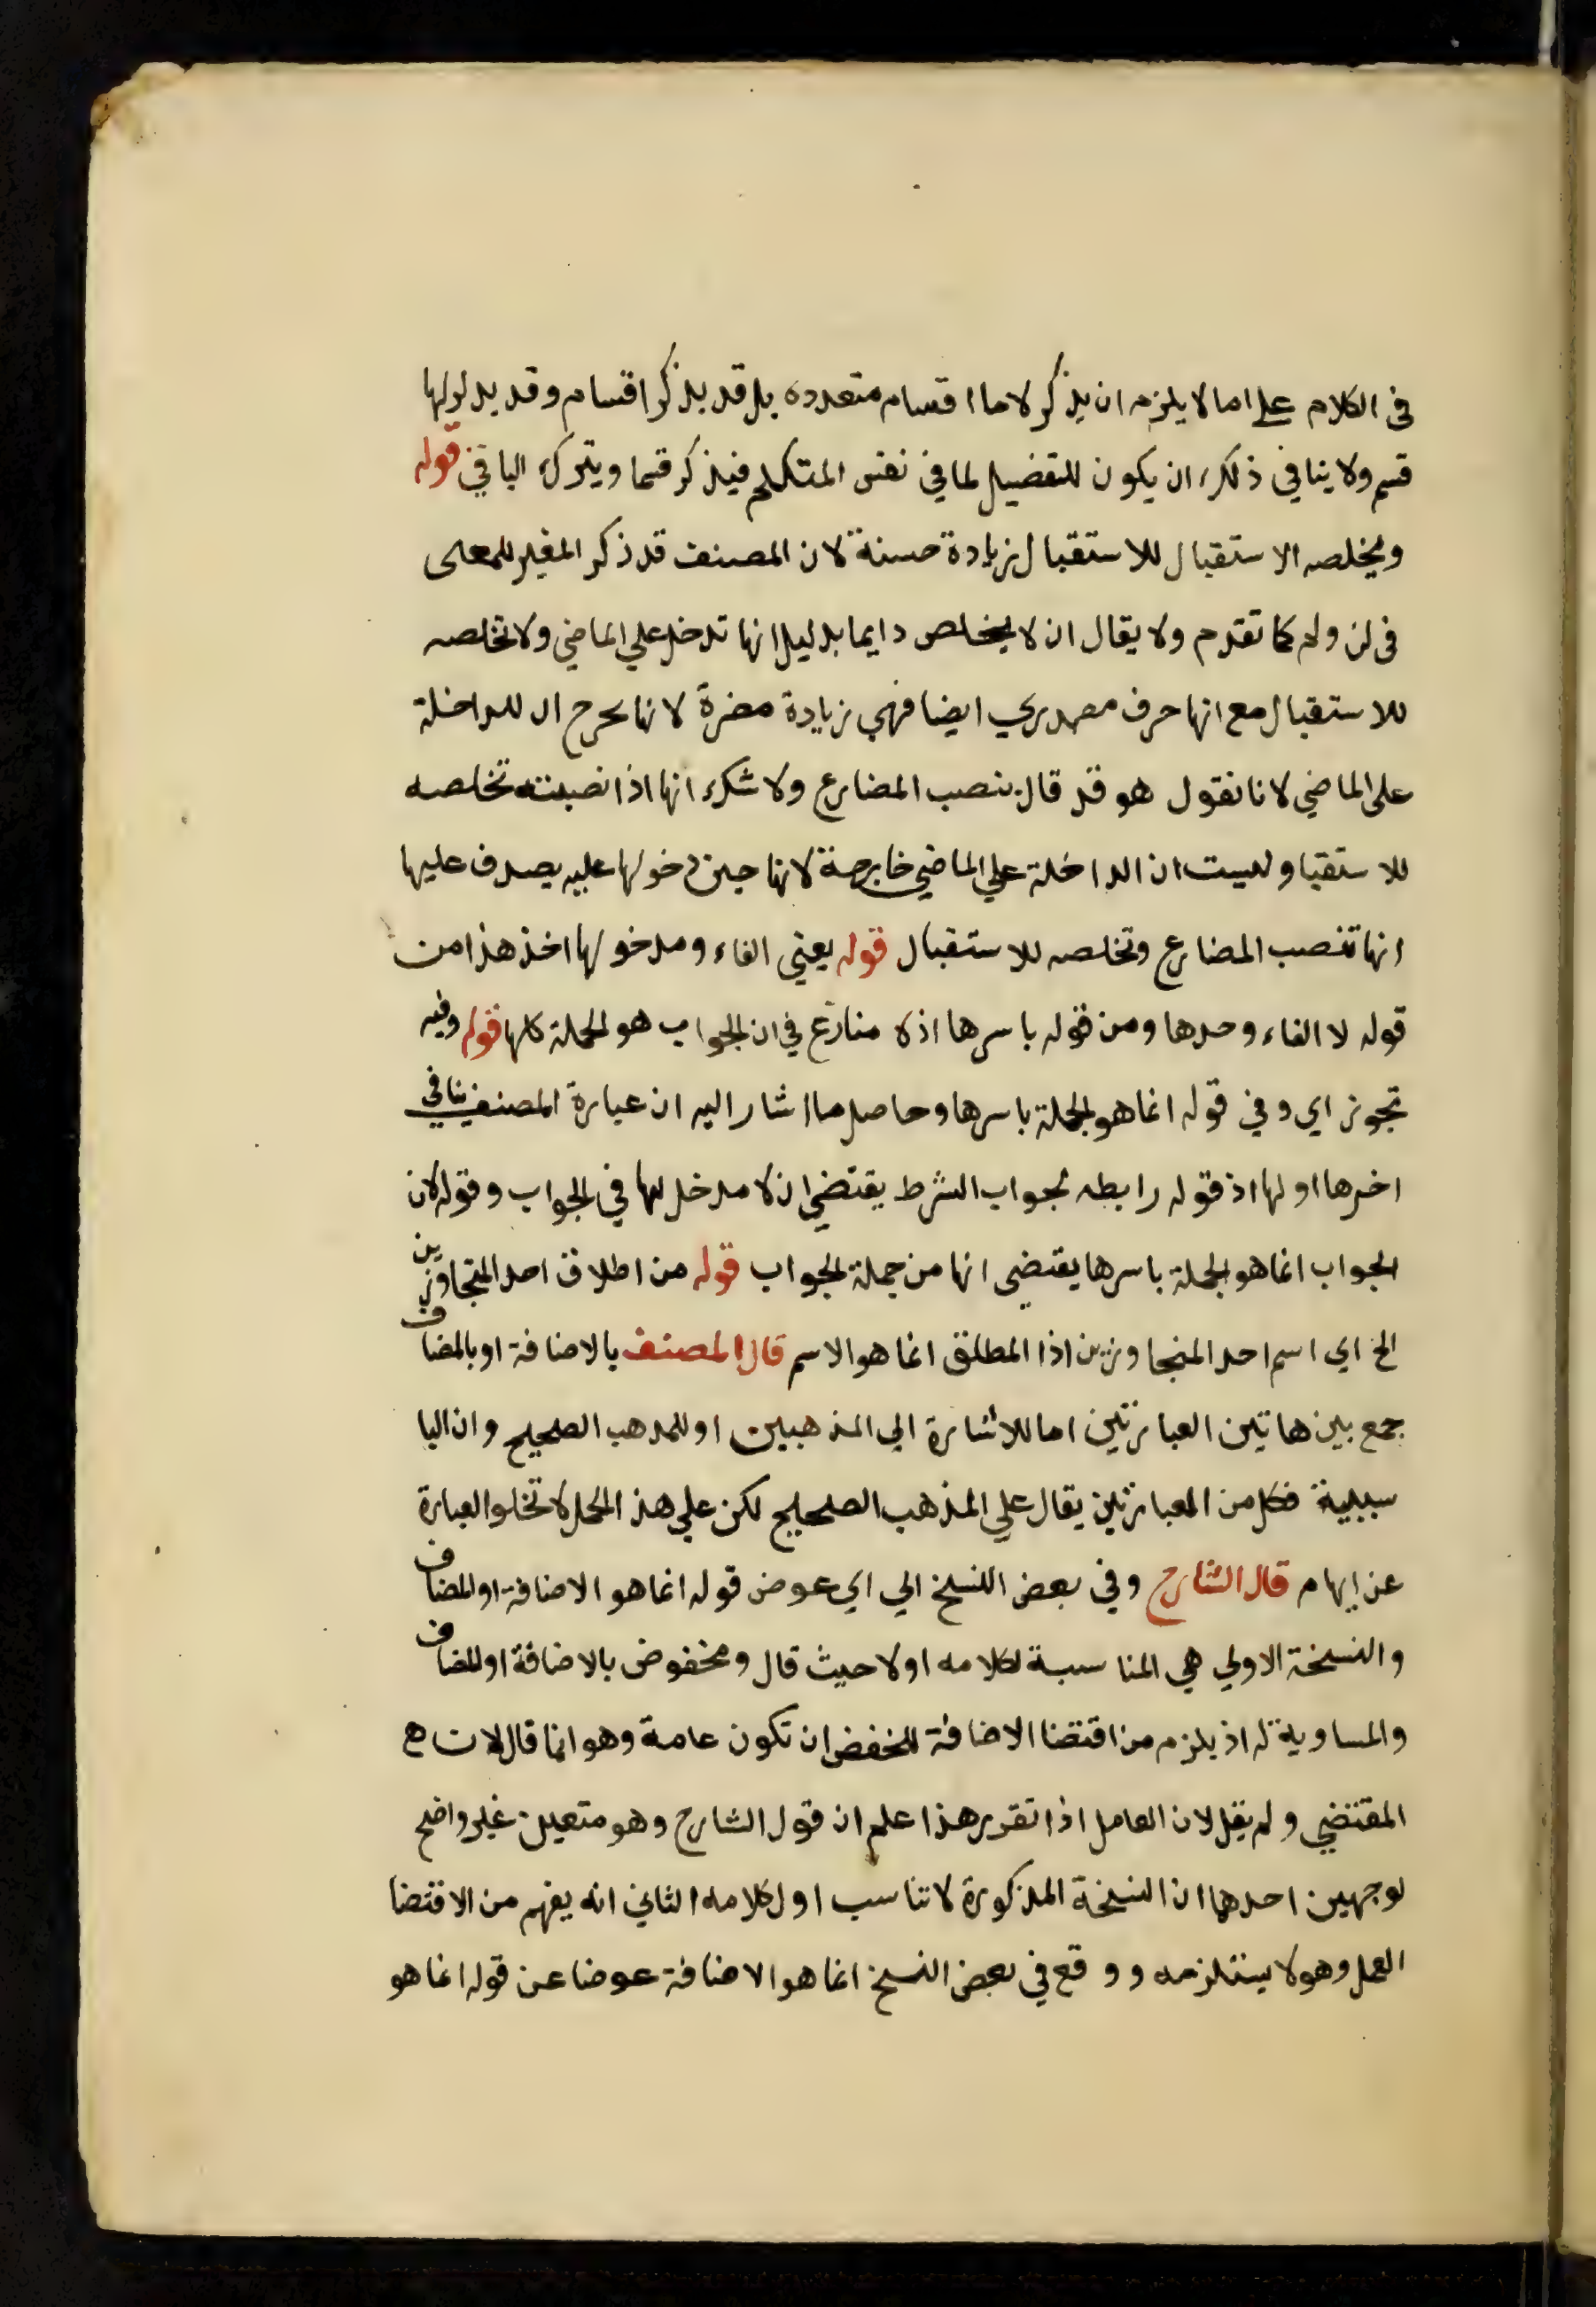 في الكلام على اما لا يلزم ان يذكر لاما اقسام متعدده بل قد يذكر اقسام وقد يدلولها
قسم ولا ينافي ذلك ان يكون للتفضيل لما في نفس المتكلم فيذكر قسما ويترك الباقي قوله
ويخلصه الاستقبال للاستقبال زيادة حسنة لان المصنف قد ذكر المغير للمعنى
في لن ولم كما تقدم ولا يقال ان لا يخلص دايما بدليل انها تدخل علي الماضي ولا تخلصه
للاستقبال مع انها حرف مصدري ايضا فهي زيادة مضرة لانها تخرج ان للداخلة
على الماضي لانا نقول هو قد قال ينصب المضارع ولا شك انها اذا نصبته تخلصه
للاستقبا وليست ان الداخلة علي الماضي خارجة لانها حين دخولها عليه يصدق عليها
انها تنصب المضارع وتخلصه للاستقبال قوله يعني الفاء ومدخولها اخذ هذا من
قوله لا الفاء وحدها ومن قوله باسرها اذ لا منازع في ان الجواب هو الجملة كلها قوله وفيه
تجوز اي وفي قوله انما هو الجملة باسرها وحاصل ما اشار اليه ان عبارة المصنف ينافي
اخرها اولها اذ قوله رابطه لجواب الشرط يقتضي ان لا مدخل لها في الجواب وقوله لان
الجواب انما هو الجملة باسرها يقتضي انها من جملة الجواب قوله من اطلاق احد المتجاوزين
الخ اي اسم احد المتجاوزين اذا المطلق انما هو الاسم قال المصنف بالاضافة او بالمضاف
جمع بين هاتين العبارتين اما للاشارة الي المذهبين او للمذهب الصحيح وان البا
سببية فكل من العبارتين يقال علي المذهب الصحيح لكن علي هذ المحل لا تخلو العبارة
عن ايهام قال الشارح وفي بعض النسخ الي اي عوض قوله انما هو الاضافة او المضاف
والنسخة الاولي هي المناسبة لكلامه اولا حيث قال ومخفوض بالاضافة او للمضاف
والمساوية له اذ يلزم من اقتضا الاضافة للخفض ان تكون عامة وهو انما قال لان
المقتضي ولم يقل لان العامل اذا تقرر هذا علم ان قول الشارح وهو متعين غير واضح
لوجهين احدهما ان النسخة المذكورة لا تناسب اول كلامه الثاني انه يفهم من الاقتضا
العمل وهو لا يستلزمه ووقع في بعض النسخ انما هو الاضافة عوضا عن قوله انما هو